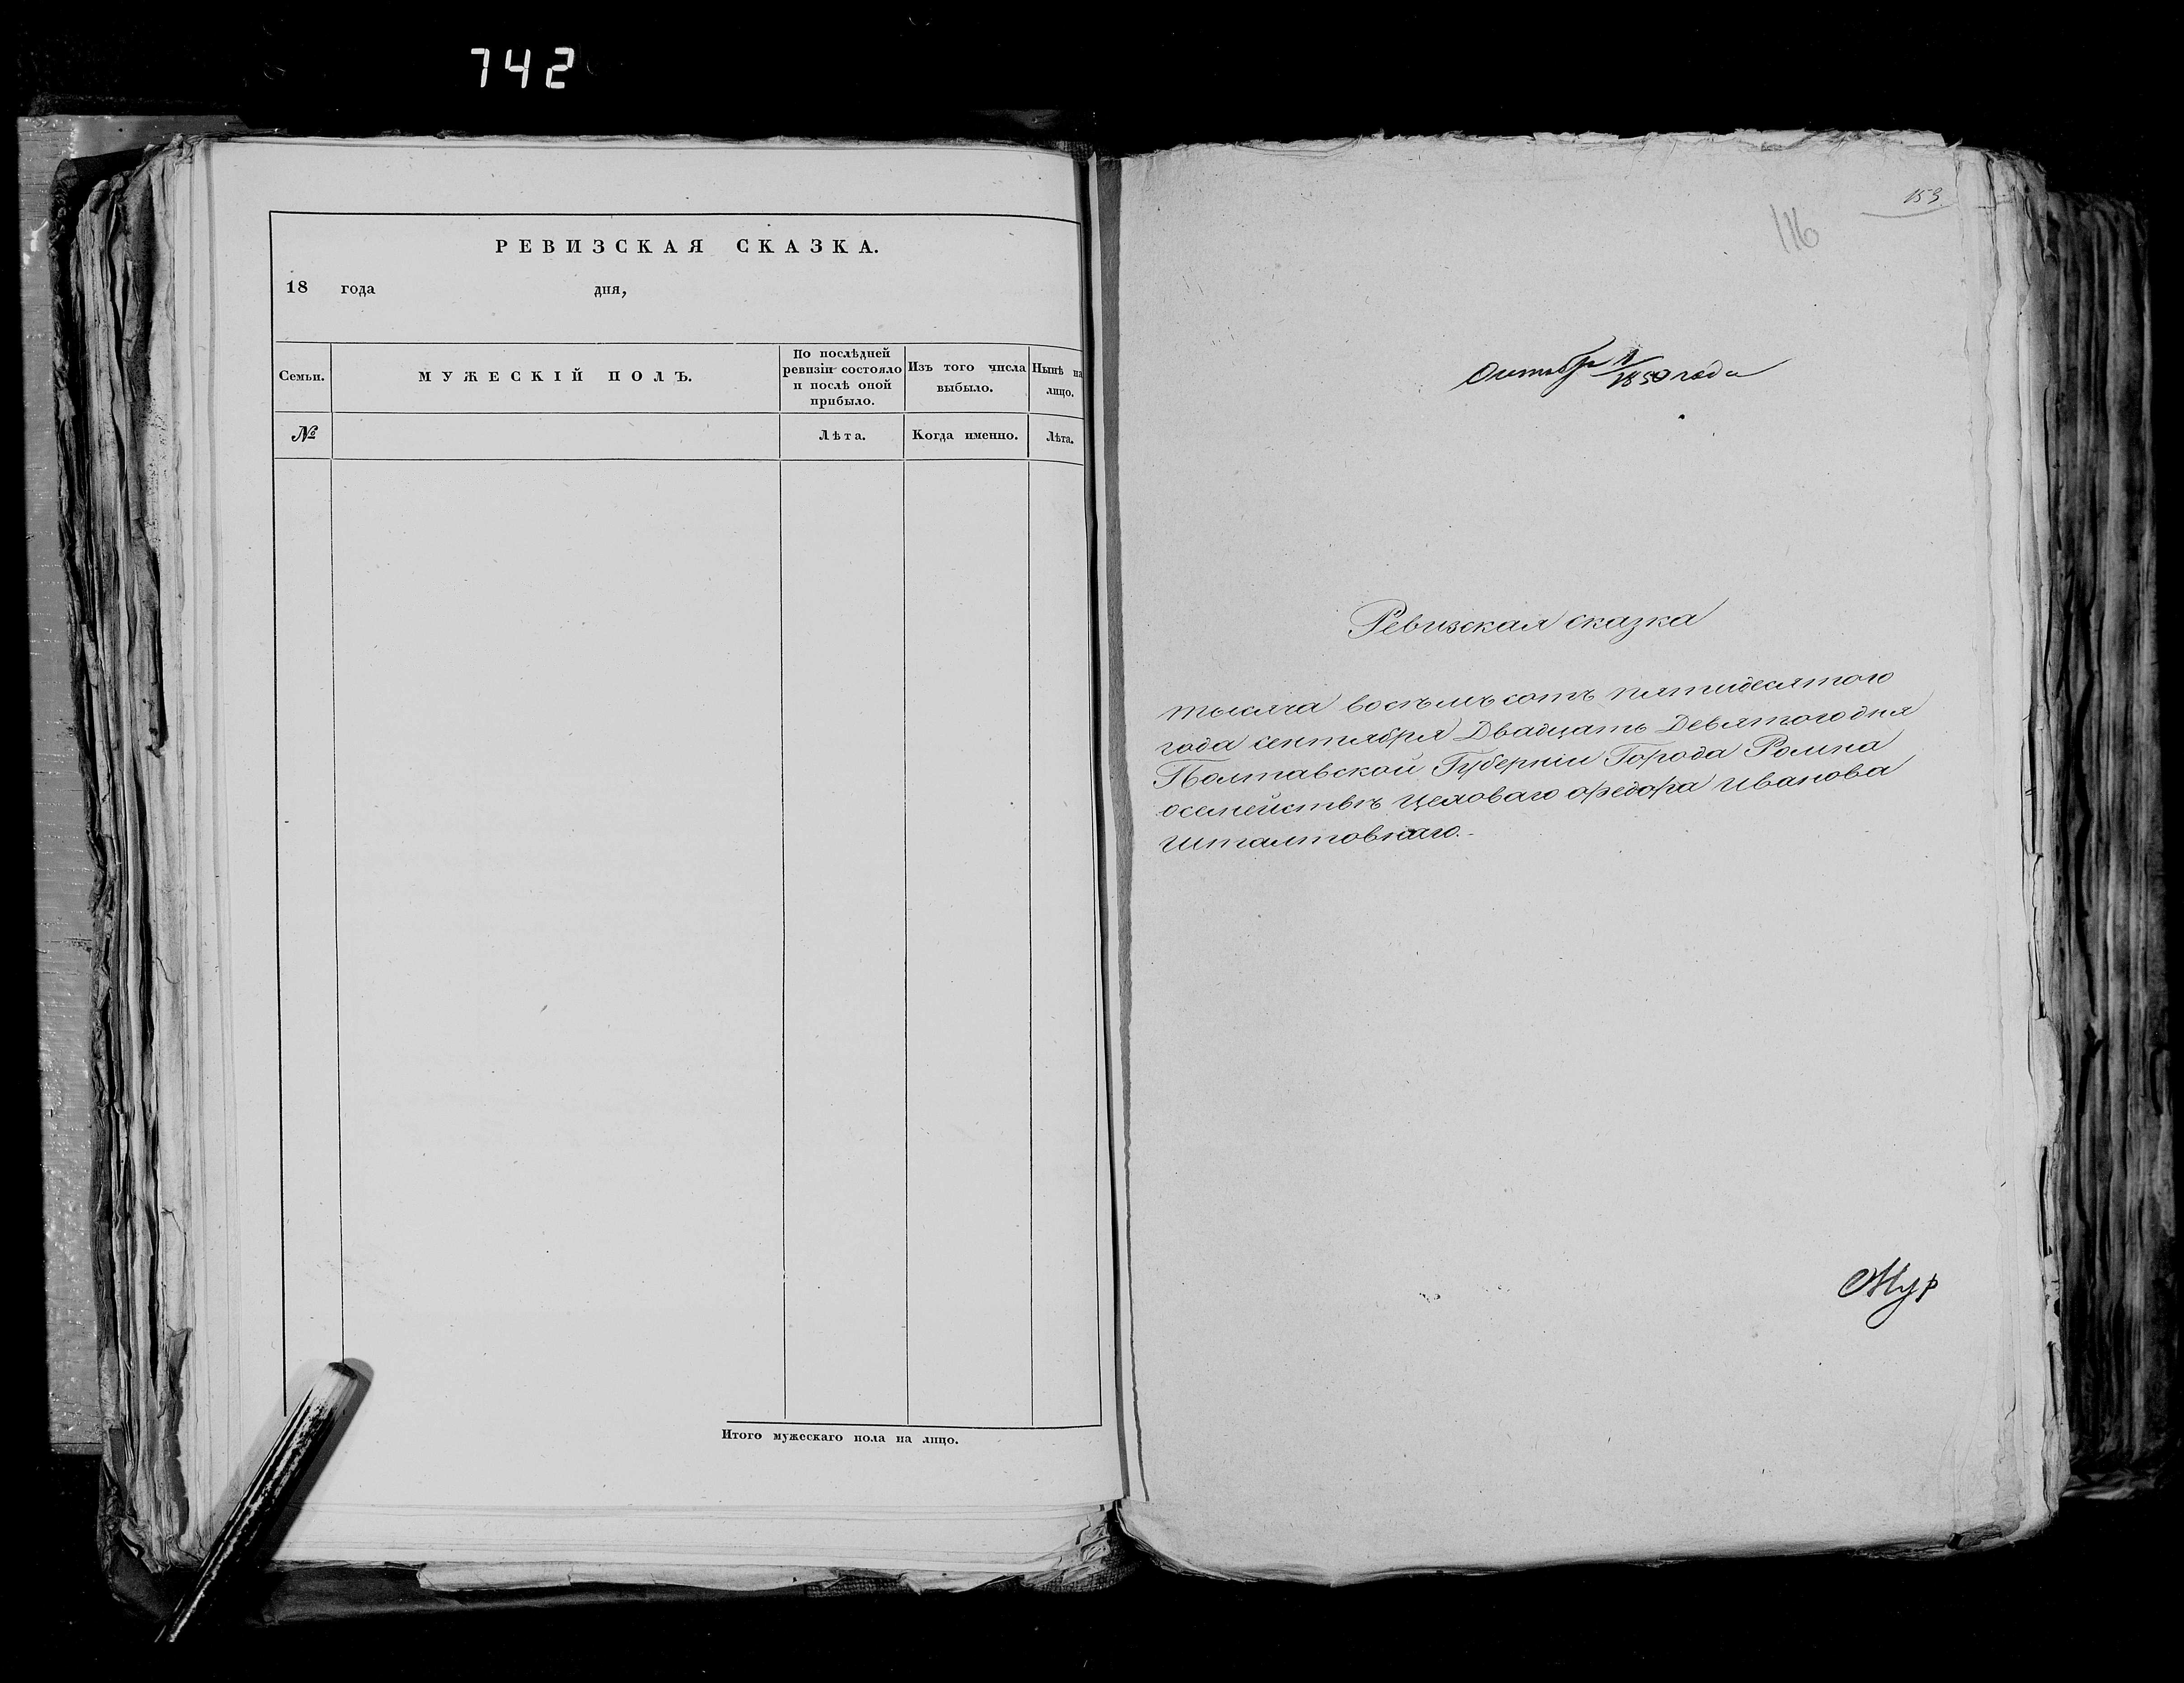 742
РЕВИЗСКАЯ СКАЗКА.
18 года дня,
Семьи.
МУЖЕСКІЙ ПОЛЪ.
По послѣдней
ревизіи состояло
и послѣ оной
прибыло.
Изъ того числа
выбыло.
Нынѣ на
лицо.
№
Лѣта.
Когда именно.
Лѣта.
Итого мужескаго пола на лицо.
153
116
Октября 1
1850 года
Ревизская сказка
тысяча восъмъ сотъ пятидесятого
года сентября Двадцать Девятого дня
Полтавской Губерніи Города Ромна
осемействѣ Цеховаго Федора Иванова